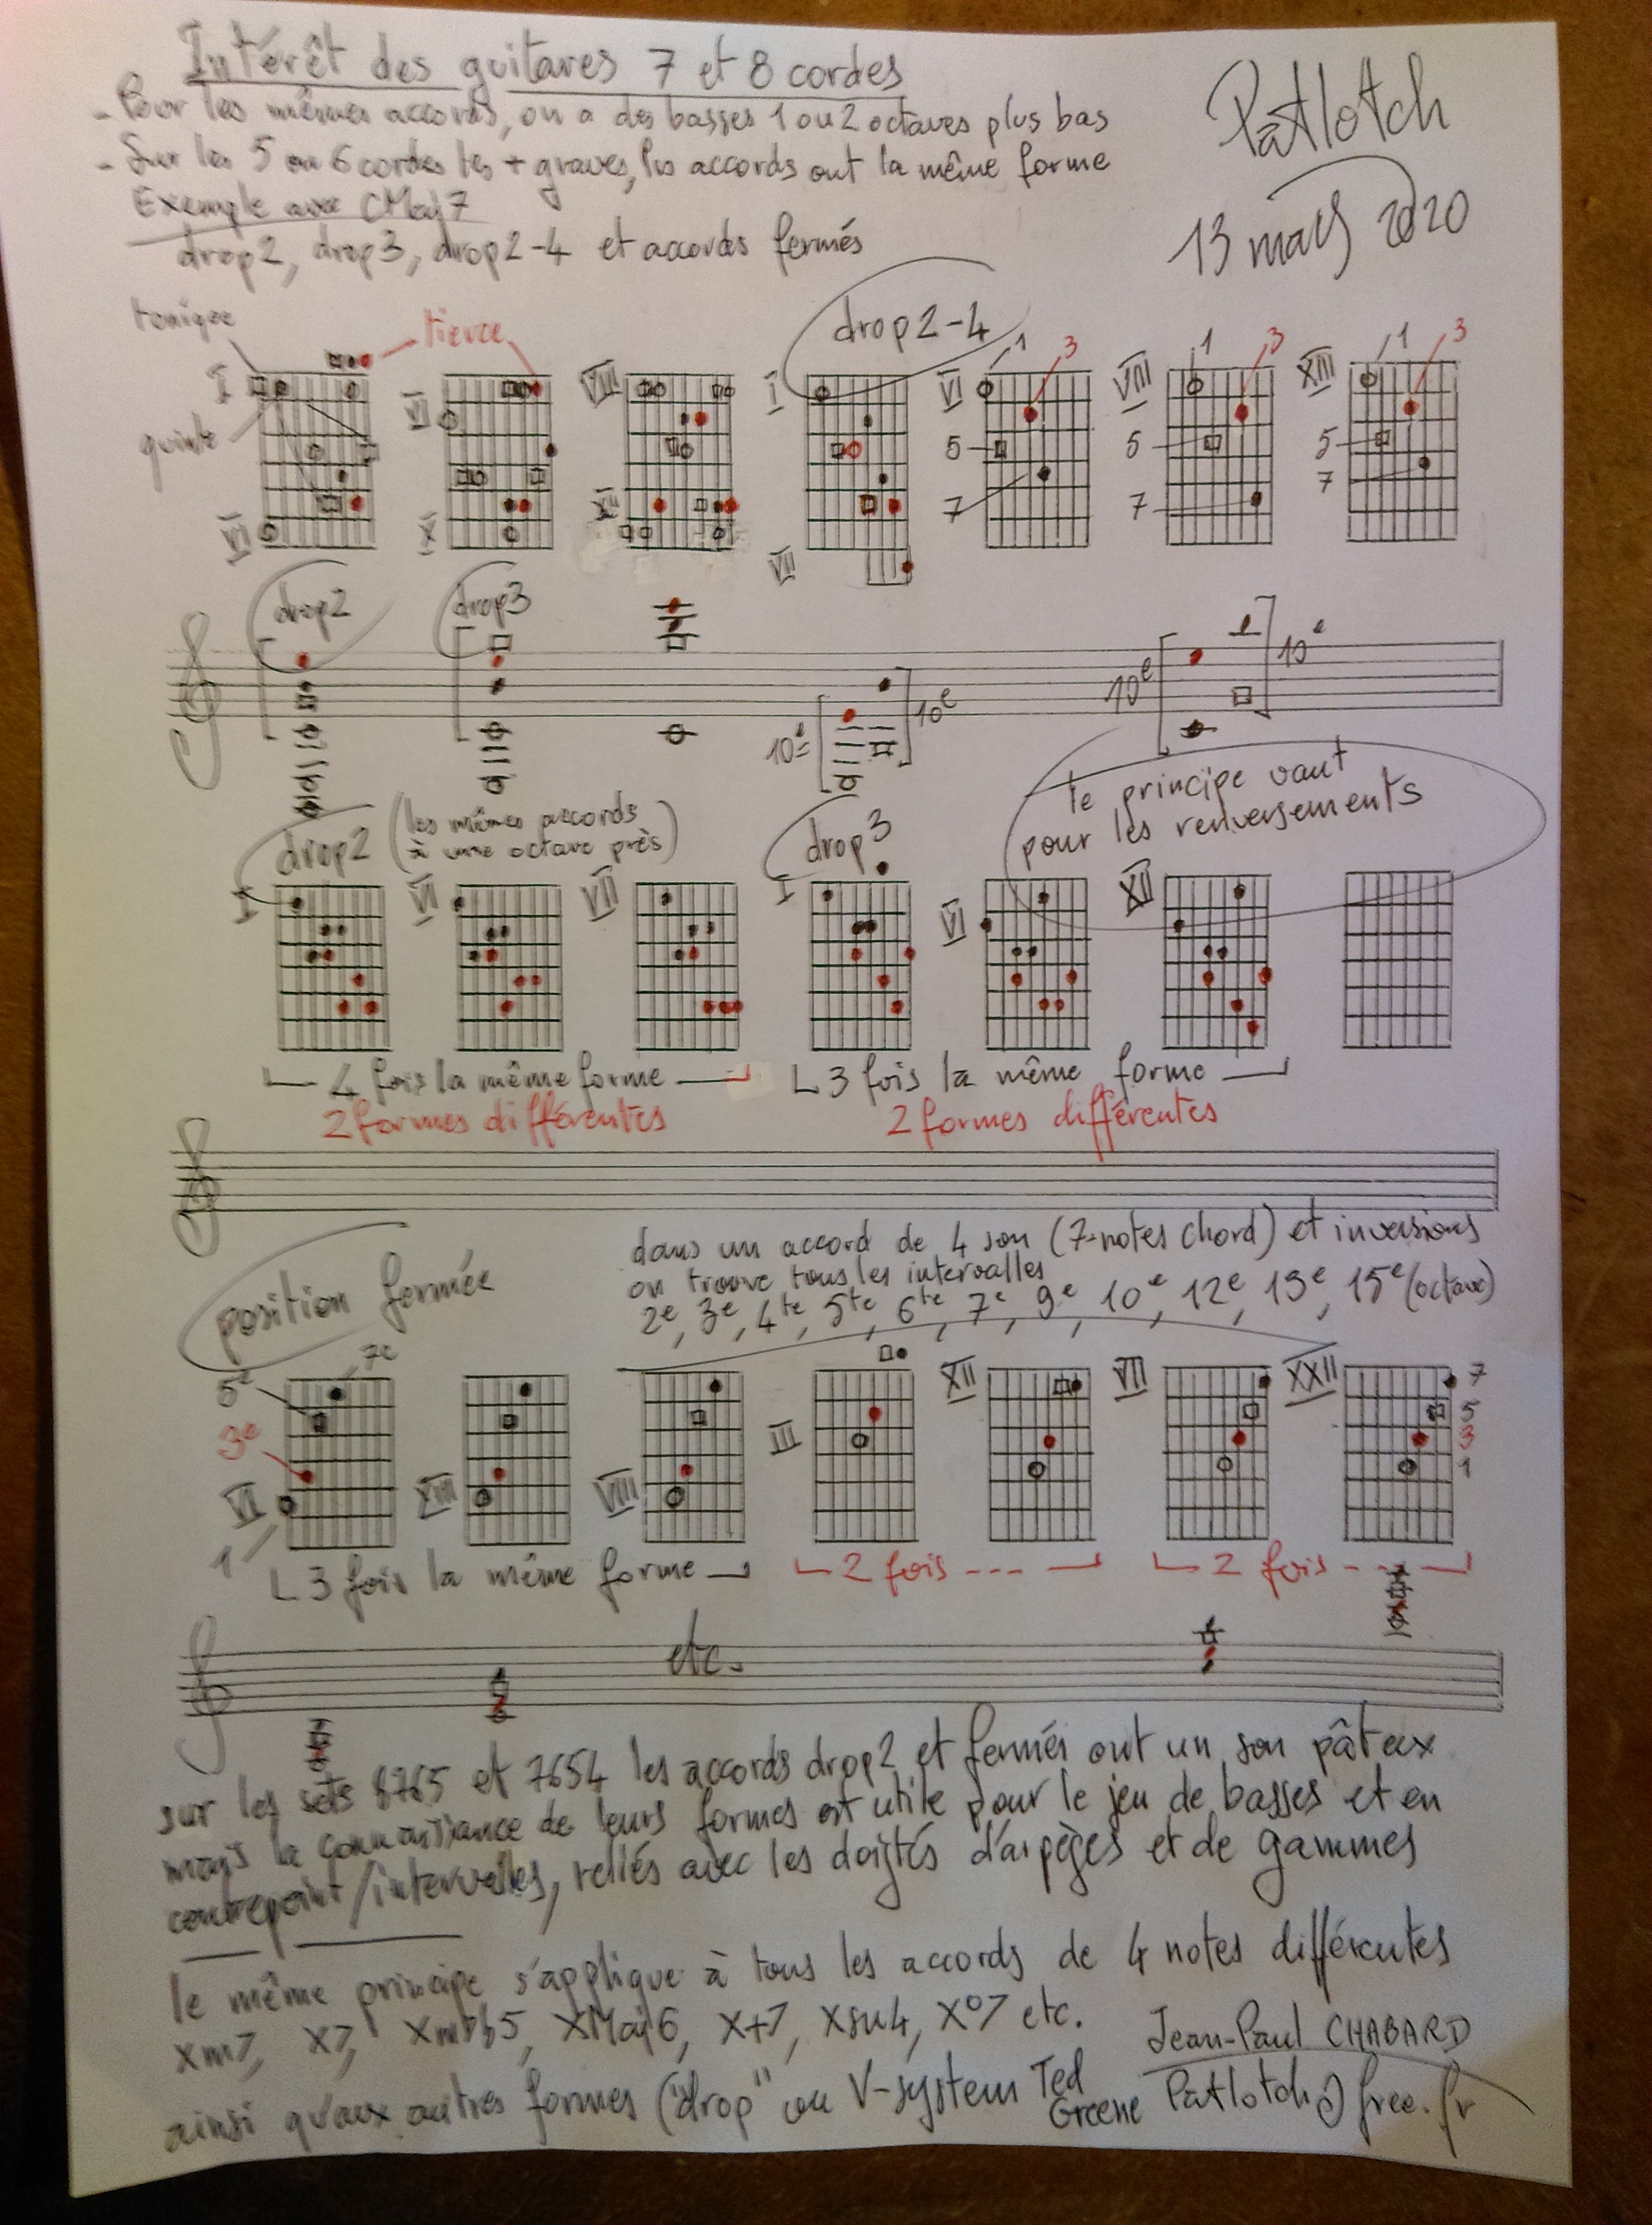 Intérêt des guitares 7 et 8 cordes
- Pour les mêmes accords, on a des basses 1 ou 2 octaves plus bas
- Sur les 5 ou 6 cordes les + graves, les accords ont la même forme
Exemple avec CMaj7
drop2, drop3, drop2-4 et accords fermés
Patlotch
13 mars 2020
tonique
tierce
quinte
drop2-4
1 3
1 3
1 3
I
VI
VI
X
VIII
XII
I
VII
VI
5
7
VIII
5
7
XIII
5
7
drop2
drop3
10e
10e
10e
10e
le principe vaut
pour les renversements
drop2 (les mêmes accords
à une octave près)
drop3
I
VII
VII
I
VI
XII
4 fois la même forme
2 formes différentes
3 fois la même forme
2 formes différentes
position fermée
dans un accord de 4 son (7-notes chord) et inversions
on trouve tous les intervalles
2e, 3e, 4te, 5te, 6te, 7e, 9e, 10e, 12e, 13e, 15e (octave)
5e
7e
3e
VI
1
XIII
VIII
III
XII
VII
XXII
7
5
3
1
3 fois la même forme
2 fois ---
2 fois ---
etc.
sur les sets 8765 et 7654 les accords drop2 et fermés ont un son pâteux
mais la connaissance de leurs formes est utile pour le jeu de basses et en
contrepoint/intervalles, reliés avec les doigtés d'arpèges et de gammes
le même principe s'applique à tous les accords de 4 notes différentes
Xm7, X7, Xm7b5, XMaj6, X+7, Xsu4, X°7 etc.
ainsi qu'aux autres formes ("drop" ou V-system Ted
Greene
Jean-Paul CHABARD
Patlotch@free.fr